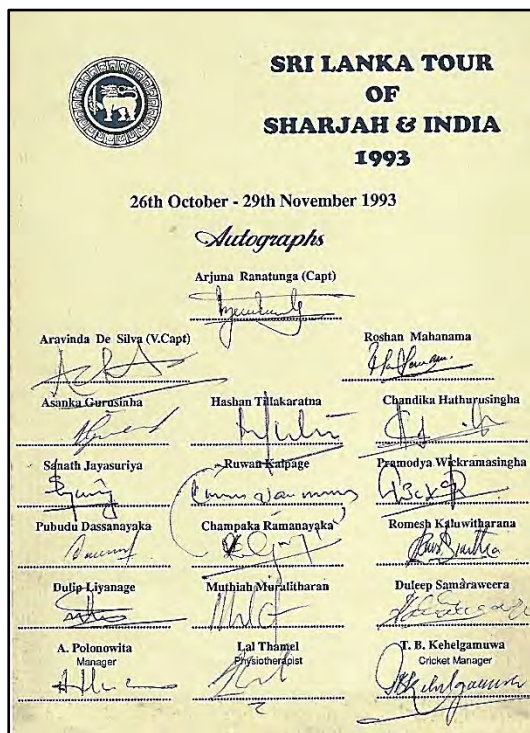 SRI LANKA TOUR
OF
SHARJAH & INDIA
1993
26th October - 29th November 1993
Autographs
Arjuna Ranatunga (Capt)
Aravinda De Silva (V.Capt) Roshan Mahanama
Asanka Gurusinha Hashan Tillakaratna Chandika Hathurusingha
Sanath Jayasuriya Ruwan Kalpage Pramodya Wickramasingha
Pubudu Dassanayaka Champaka Ramanayaka Romesh Kaluwitharana
Dulip Liyanage Muthiah Muralitharan Duleep Samaraweera
A. Polonowita Lal Thamel T. B. Kehelgamuwa
Manager Physiotherapist Cricket Manager